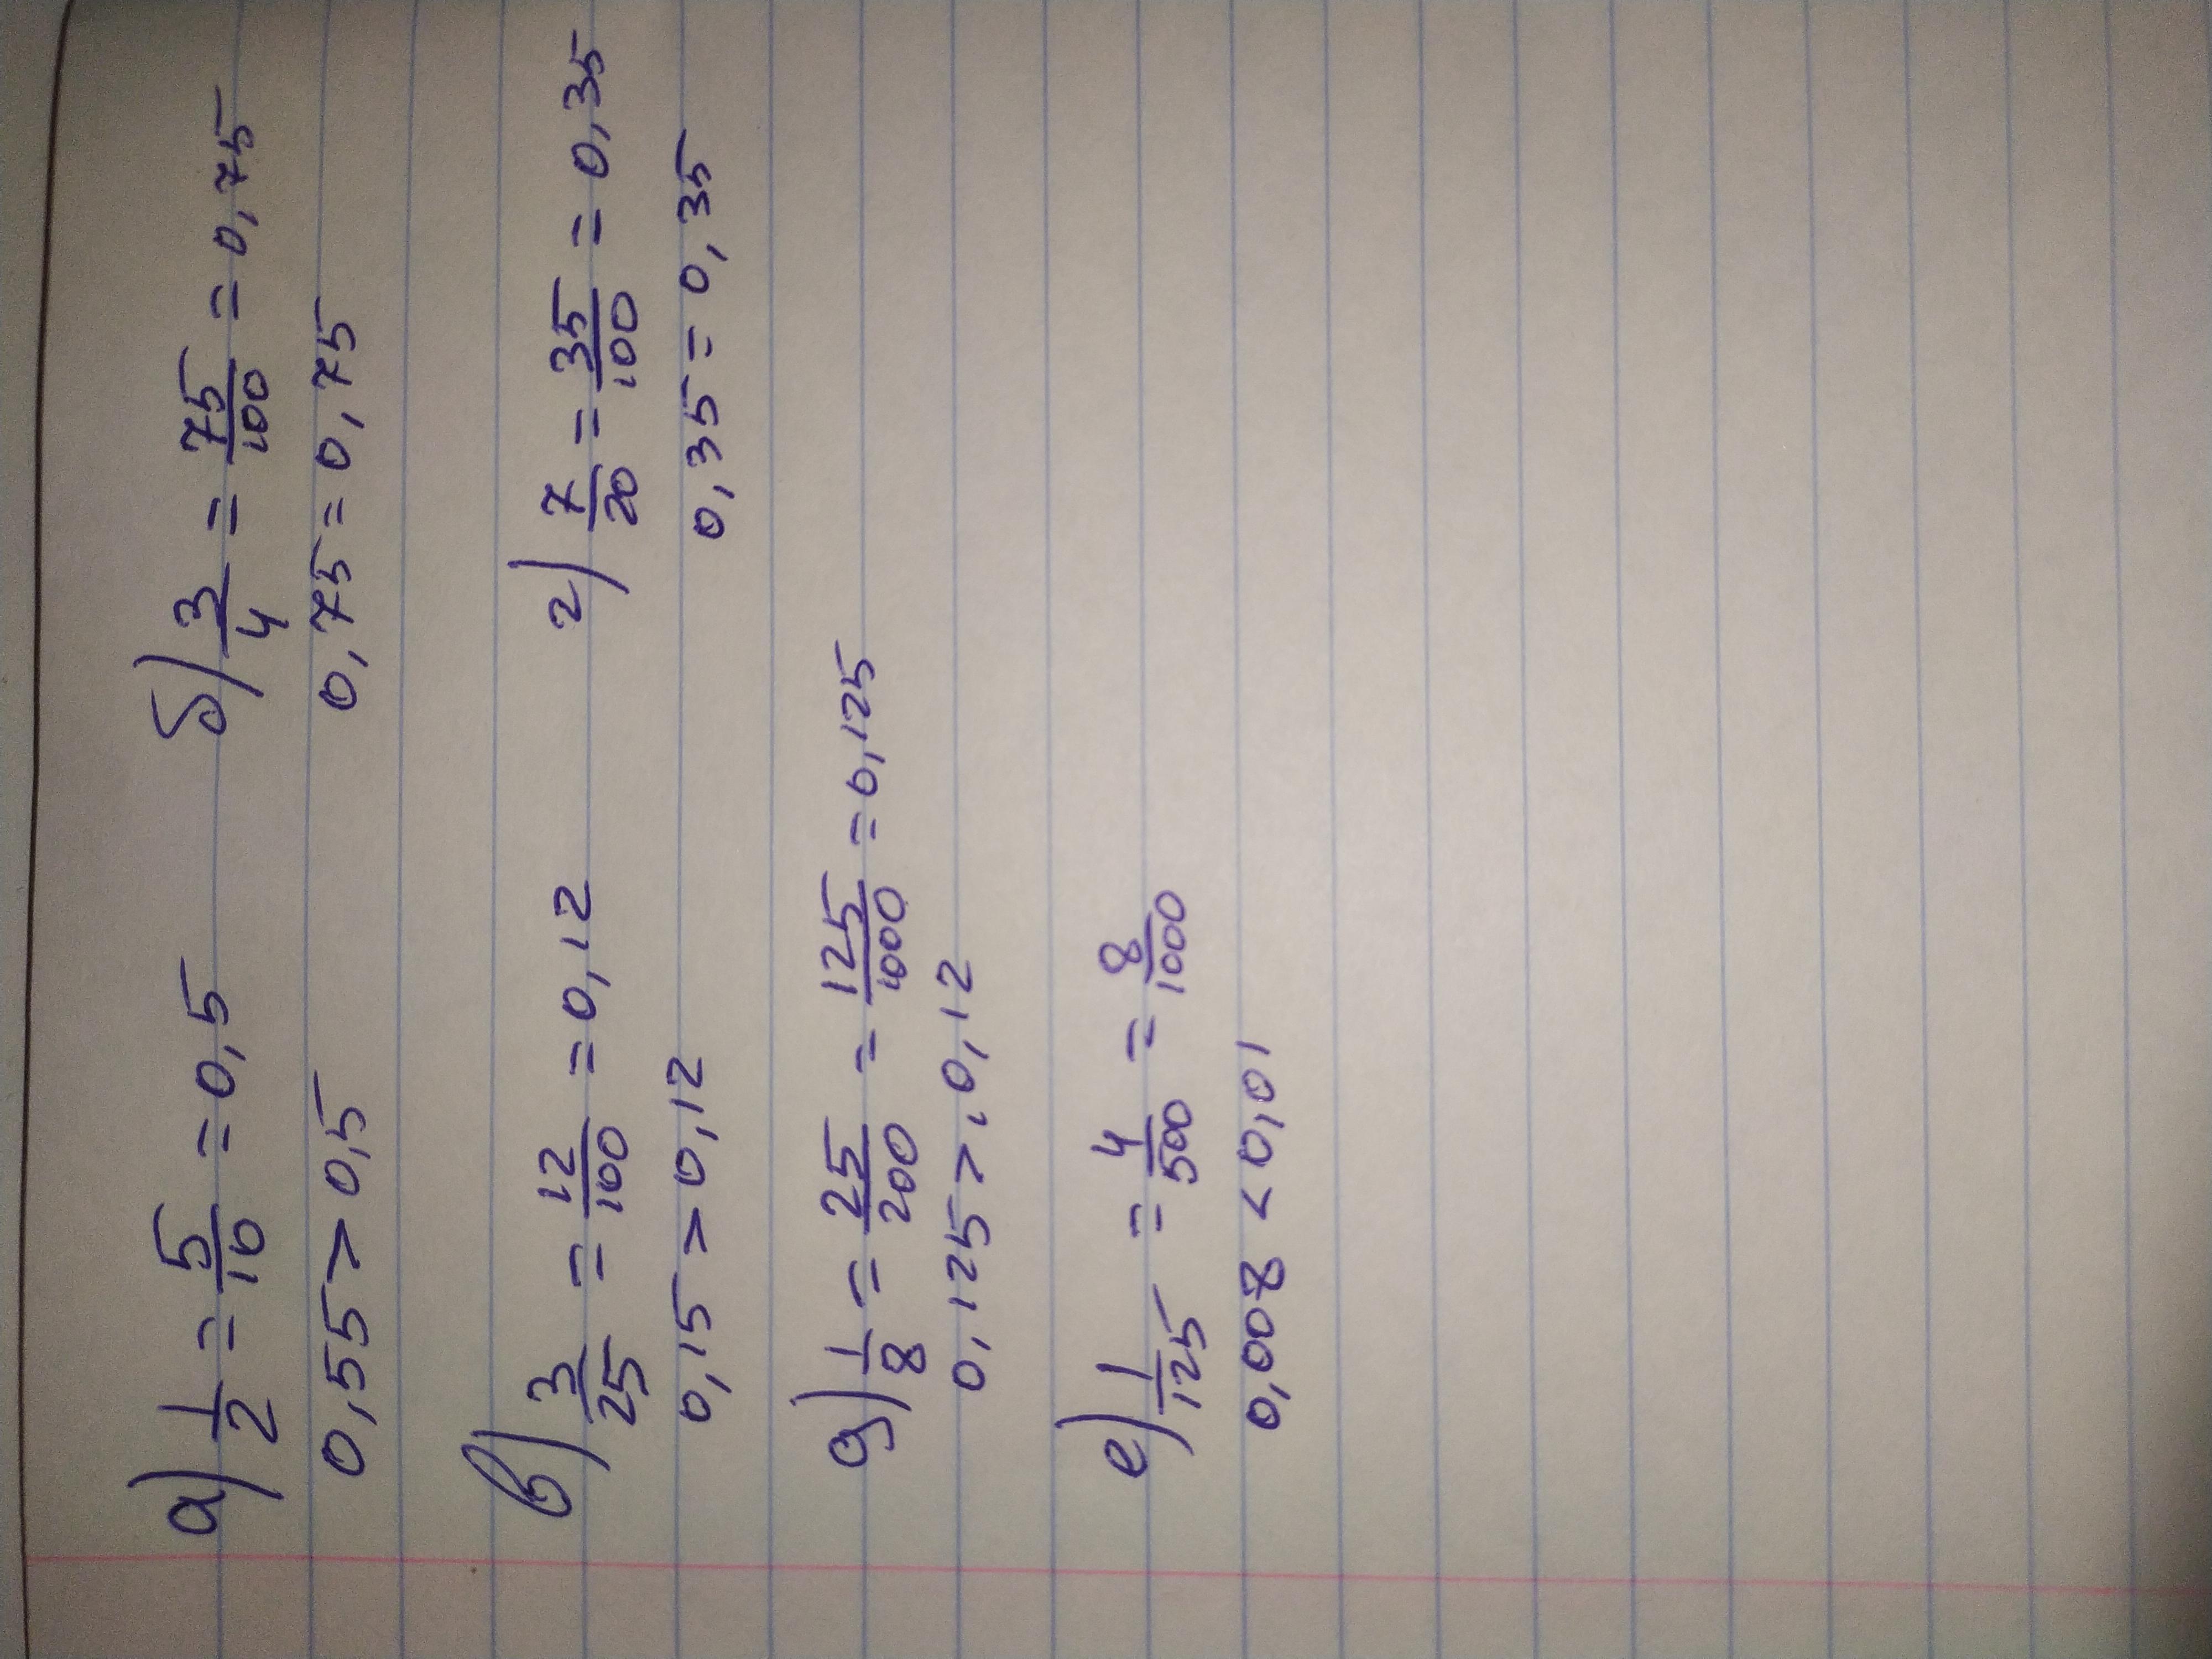 а) 1/2 = 5/10 = 0,5   б) 3/4 = 75/100 = 0,75
0,55 > 0,5   0,75 = 0,75
в) 3/25 = 12/100 = 0,12   г) 7/20 = 35/100 = 0,35
0,15 > 0,12   0,35 = 0,35
д) 1/8 = 25/200 = 125/1000 = 0,125
0,125 > 0,12
е) 1/125 = 4/500 = 8/1000
0,008 < 0,01